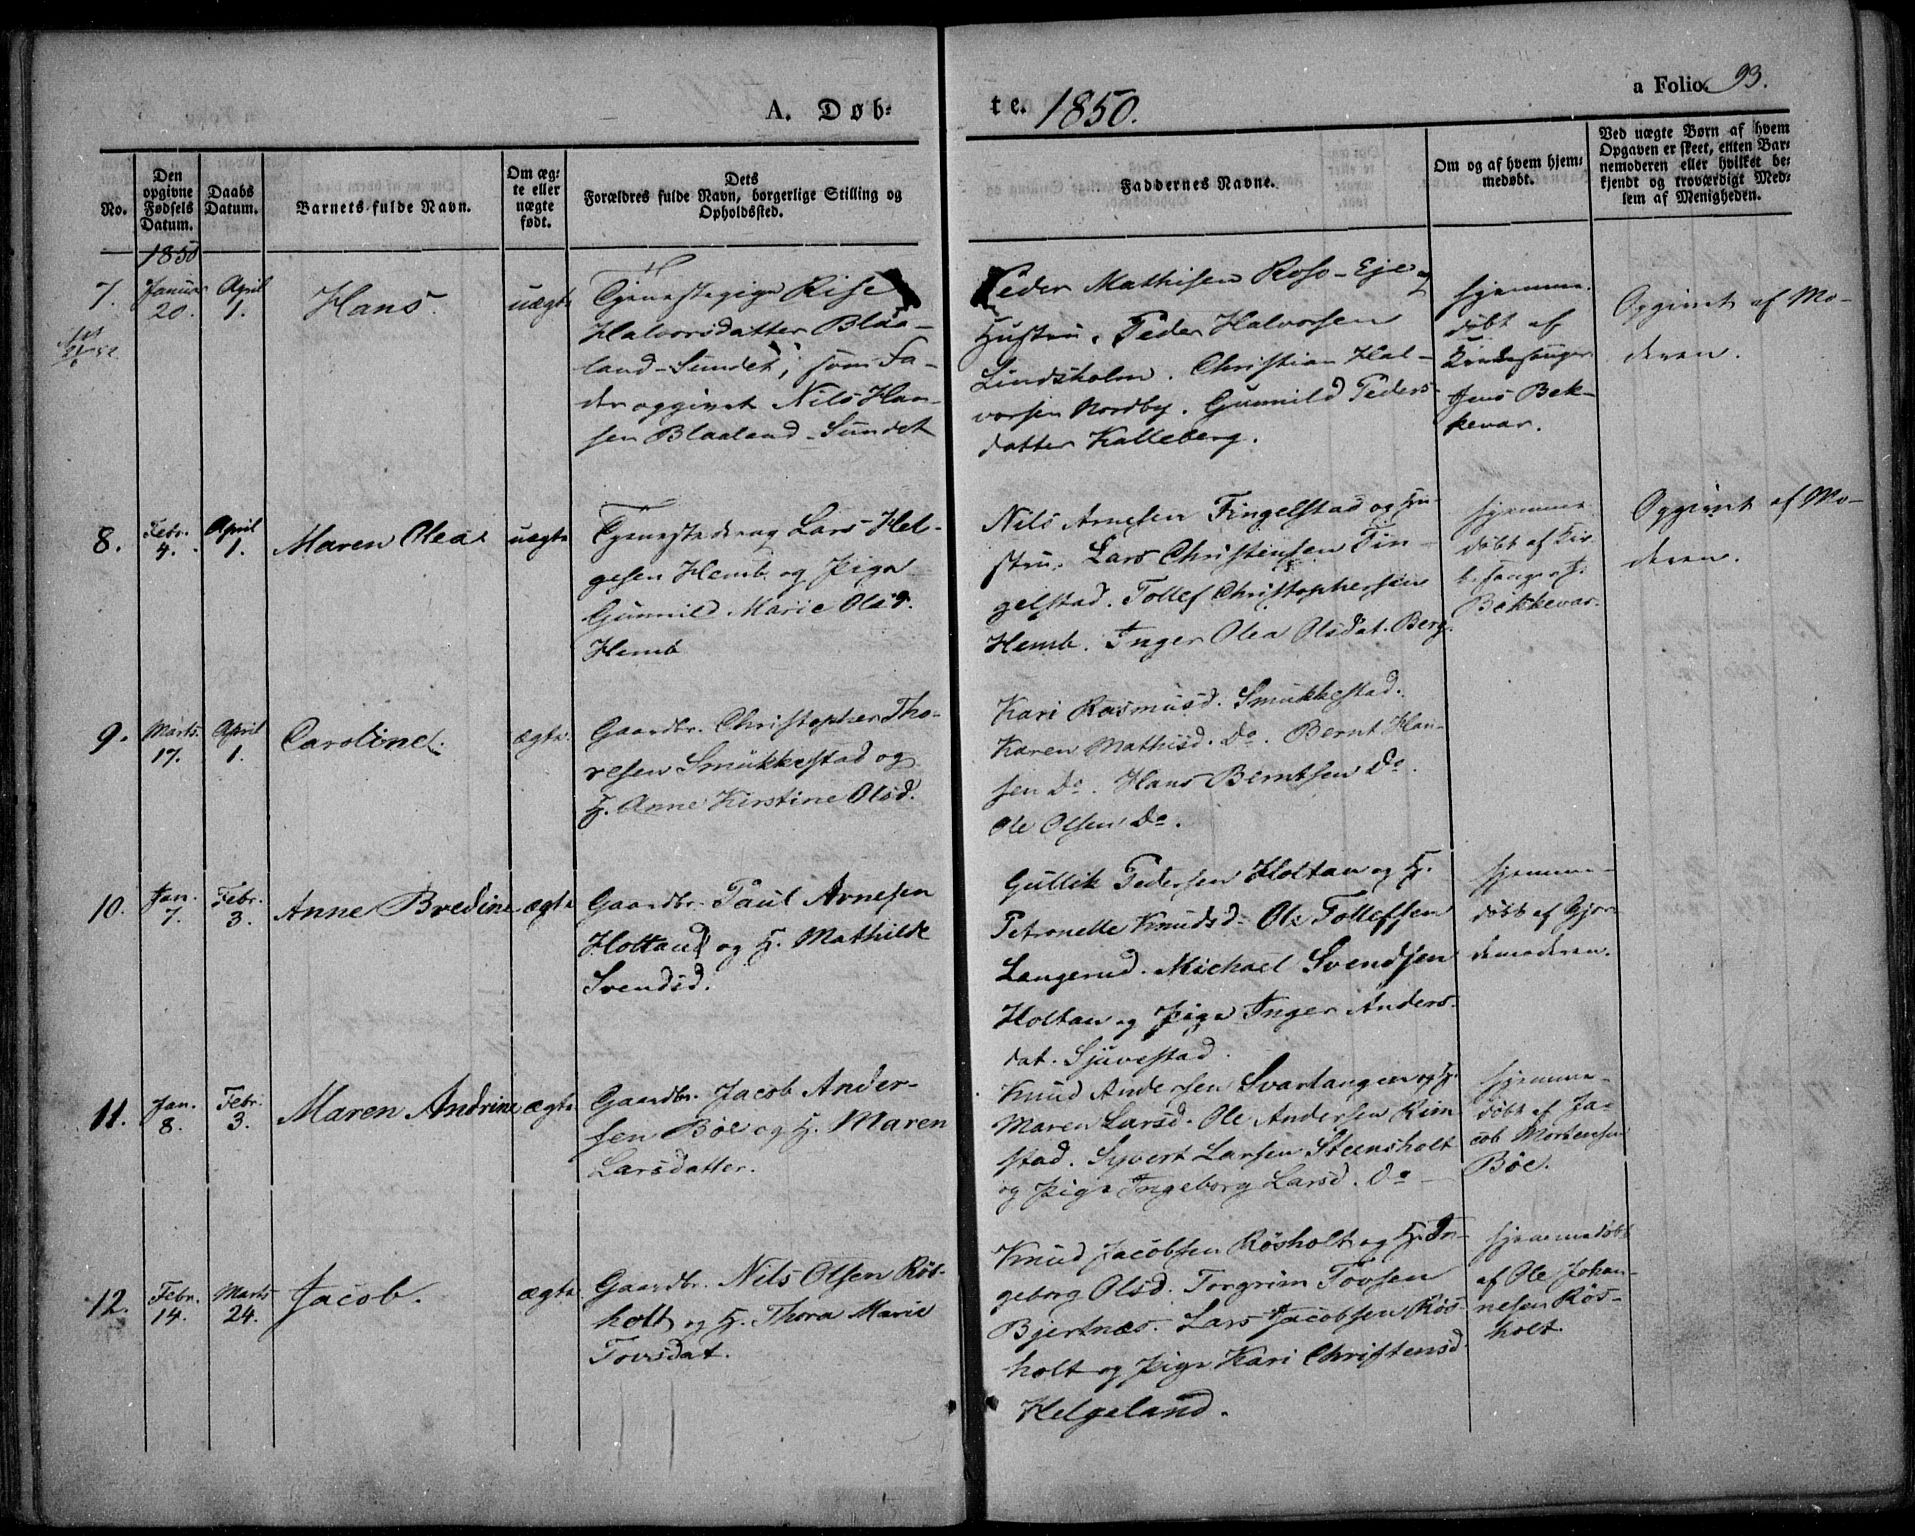 A. Døb-
te. 1850.
a Folio 93.
No.
Den opgivne Fødsels Datum.
Daabs Datum.
Barnets fulde Navn.
Om ægte eller uægte født.
Dets Forældres fulde Navn, borgerlige Stilling og Opholdssted.
Faddernes Navne.
Om og af hvem hjemmedøbt.
Ved uægte Børn af hvem Opgaven er skeet, enten Barnemoderen eller hvilket bekjendt og troværdigt Medlem af Menigheden.
1850
7.
Januar 20.
April 1.
Hans.
uægte
Tjenestepige Rise
Halvorsdatter Blaa-
land-Sundet, som Fa-
der opgivet Nils Han-
sen Blaaland-Sundet
Peder Mathisen Roso-Eje og
Hustru. Peder Halvorsen
Lindsholm. Christian Hal-
vorsen Nordby. Gunnild Peders-
datter Kalleberg.
hjemme-
døbt af
Kirkesanger
Jens Bek-
kevar.
Opgivet af Mo-
deren.
8.
Febr. 4.
April 1.
Maren Olea
uægte
Tjenestedreng Lars Hel-
gesen Hemb og Pige
Gunnild Marie Olsd.
Hemb
Nils Arnesen Fingelstad og Hu-
stru. Lars Christensen Fin-
gelstad. Tollef Christophersen
Hemb. Inger Olea Olsdat. Berg.
hjemme
døbt af Kir-
kesanger J.
Bekkevar.
Opgivet af Mo-
deren.
9.
Marts. 17.
April 1.
Caroline.
ægte.
Gaardbr. Christopher Tho-
resen Smukkestad og
H. Anne Kirstine Olsd.
Kari Rasmusd. Smukkestad.
Karen Mathisd. Do. Bernt Han-
sen Do. Hans Berntsen Do.
Ole Olsen Do.
10.
Jan. 7.
Febr. 3.
Anne Bredine
ægte
Gaardbr. Paul Arnesen
Holtan og H. Mathilde
Svendsd.
Gullik Pedersen Holtan og H.
Petronelle Knudsd. Ole Tollefsen
Langerud. Michael Svendsen
Holtan og Pige Inger Anders-
dat. Sjuvestad.
hjemme-
døbt af Gjor-
demoderen.
11.
Jan. 8.
Febr. 3.
Maren Andrine
ægte
Gaardbr. Jacob Ander-
sen Böe og H. Maren
Larsdatter.
Knud Andersen Svartangen og H.
Maren Larsd. Ole Andersen Rim
stad. Syvert Larsen Steensholt
og Pige Ingeborg Larsd. Do
hjemme-
døbt af Ja-
cob Mortensen
Böe.
12.
Febr. 14.
Marts 24.
Jacob.
ægte
Gaardbr. Nils Olsen Rös-
holt og H. Thora Marie
Tovsdat.
Knud Jacobsen Rösholt og H. In-
geborg Olsd. Torgrim Tovsen
Bjertnæs. Lars Jacobsen Rös-
holt og Pige Kari Christensd.
Helgeland.
hjemmedøbt
af Ole Johan-
nesen Rös-
holt.